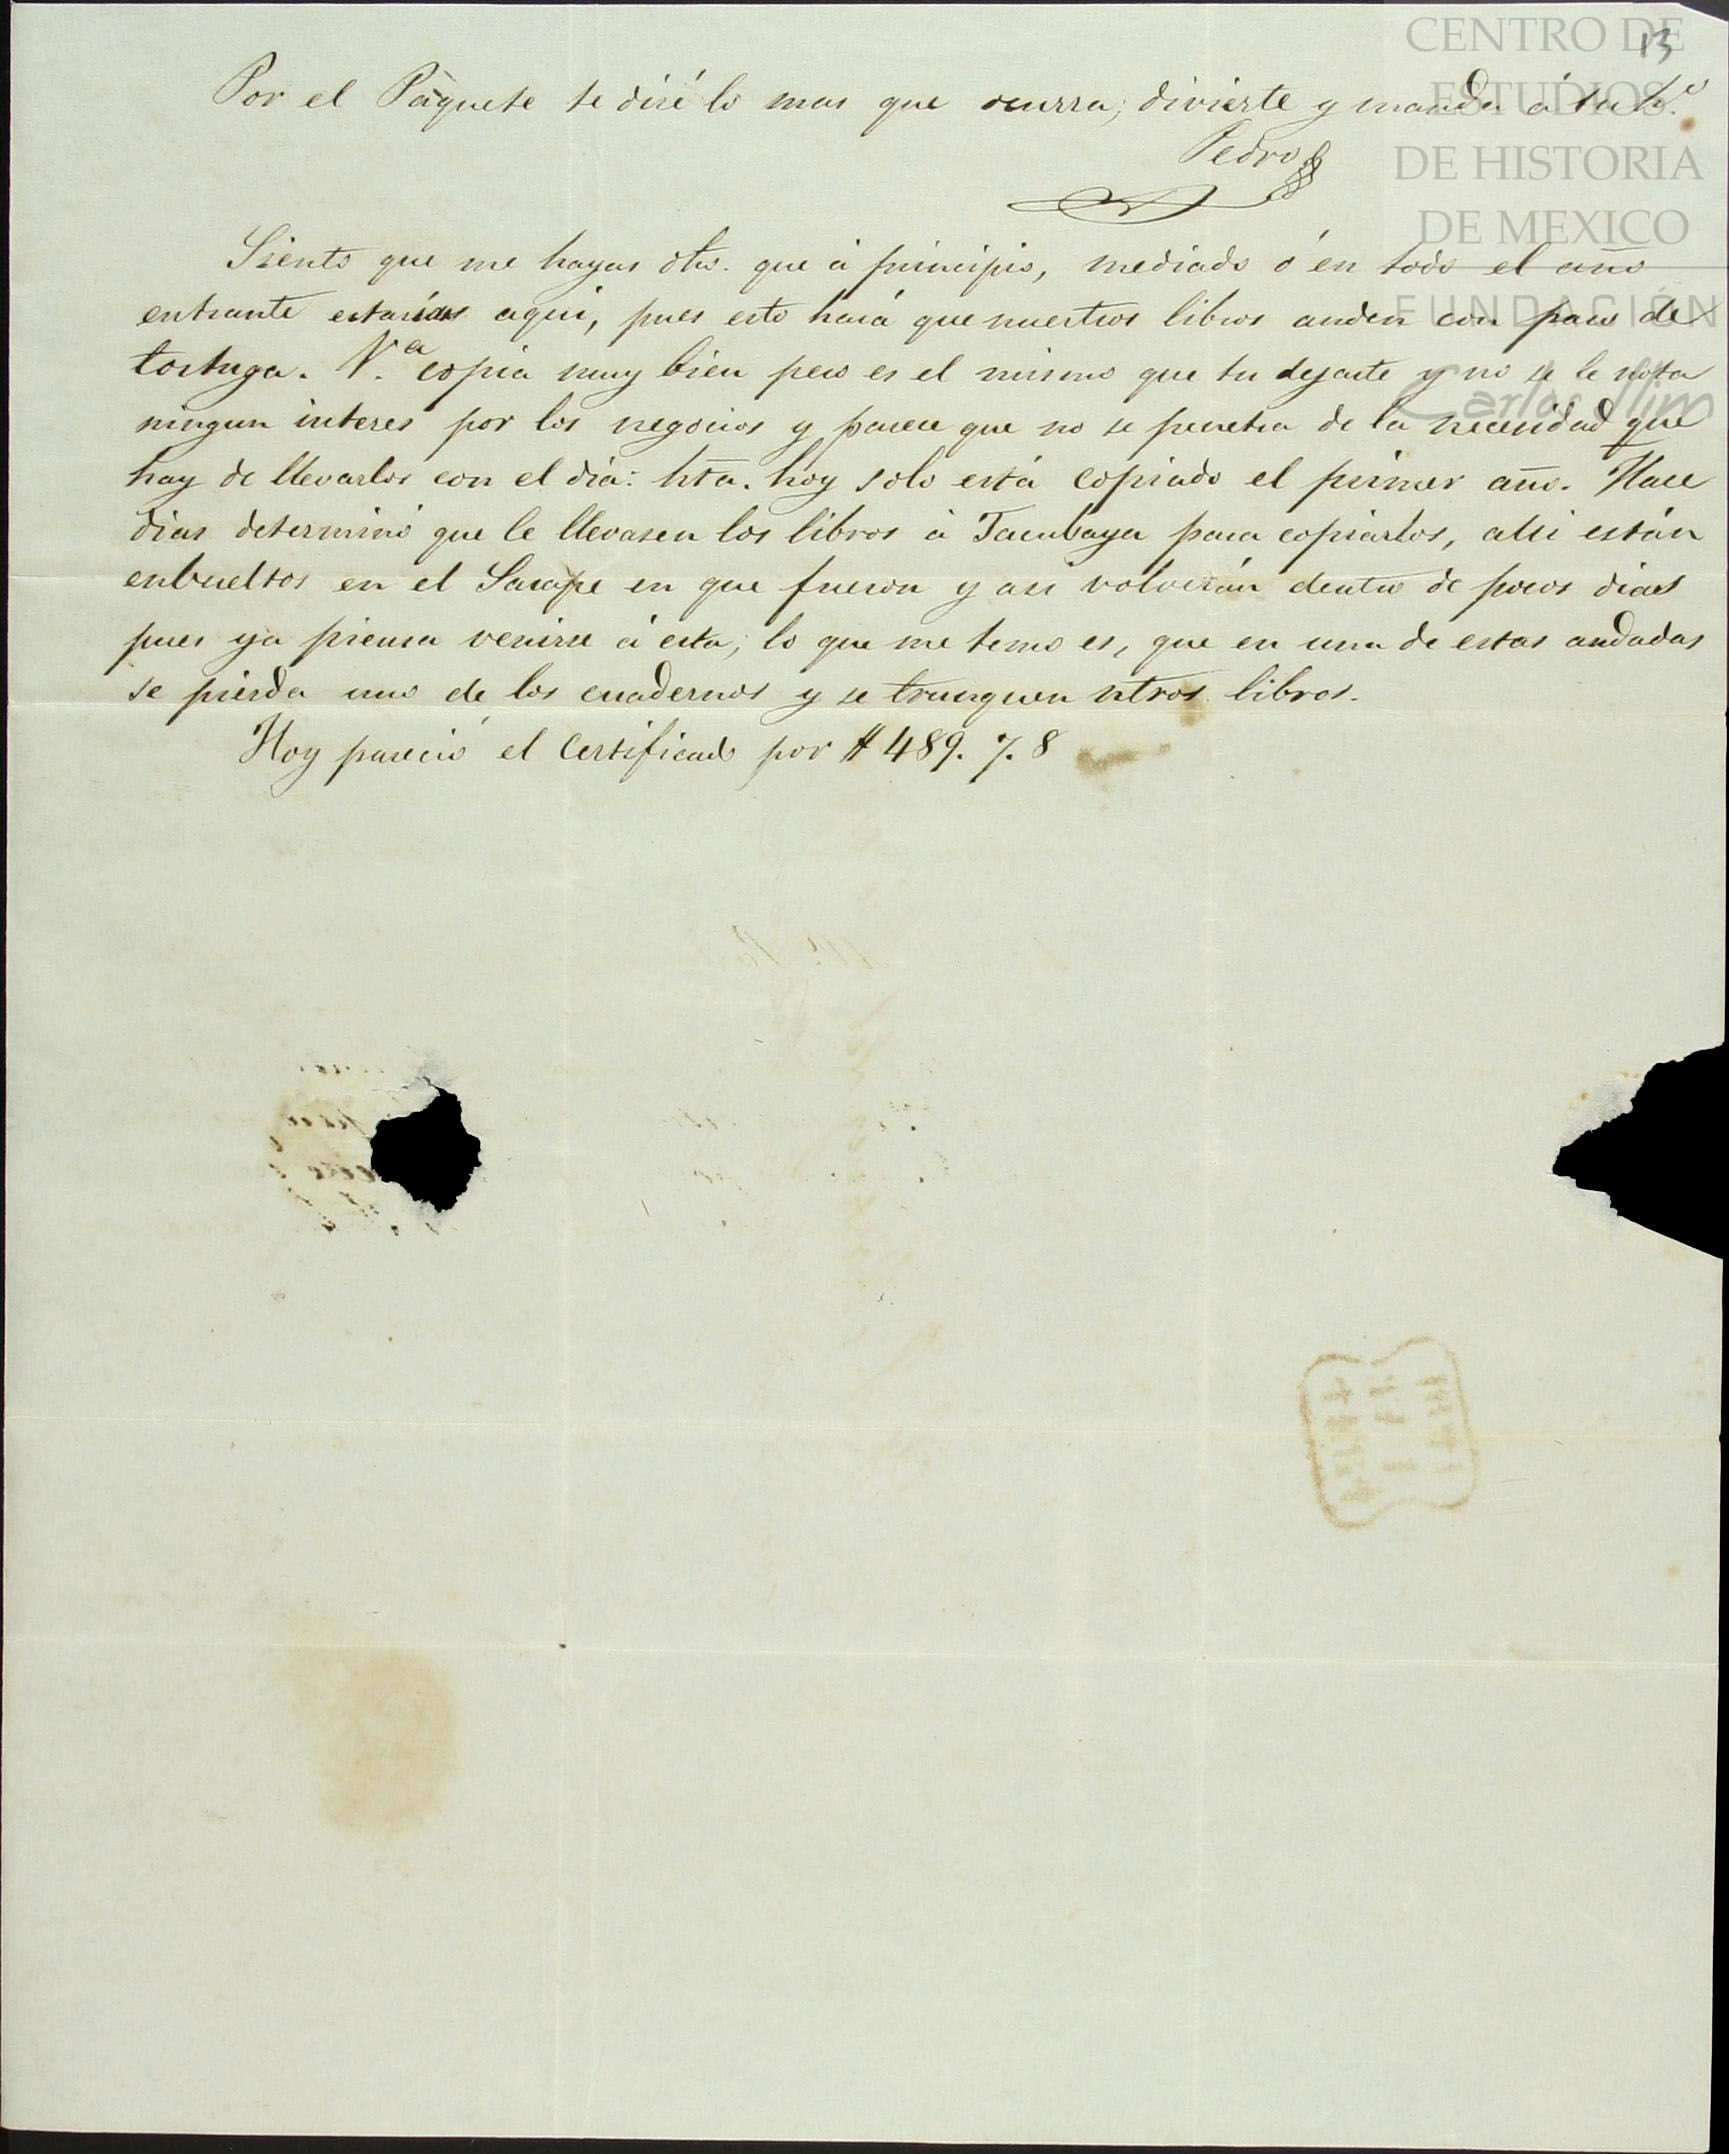 CENTRO DE
ESTUDIOS
DE HISTORIA
DE MEXICO
FUNDACIÓN
Carlos Slim
13
Por el Pàquete te diré lo mas que ocurra; divierte y manda á tu h.º
Pedro
Siento que me hayas dho. que á principio, mediado ó en todo el año
entrante estarías aqui, pues esto hará que nuestros libros anden con paso de
tortuga. V.ª copia muy bien pero es el mismo que tu dejaste y no se le nota
ningun interes por los negocios y parece que no se penetra de la necesidad que
hay de llevarlos con el dia: hta. hoy solo está copiado el primer año. Hace
dias determinó que le llevasen los libros á Tacubaya para copiarlos, alli están
enbueltos en el Sarape en que fueron y asi volverán dentro de pocos dias
pues ya piensa venirse á esta; lo que me temo es, que en una de estas andadas
se pierda uno de los cuadernos y se trunquen ntros libros.
Hoy pareció el Certificado por $ 489. 7. 8